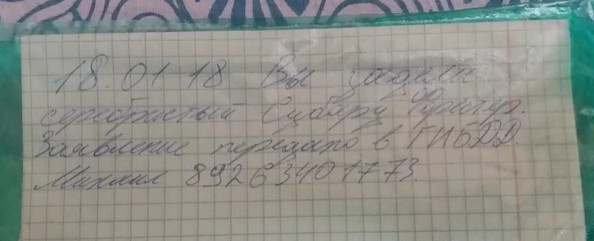 18.01 18 Вы задели
серебристый Субару Форестер.
Заявление передано в ГИБДД.
Михаил 89263401773.